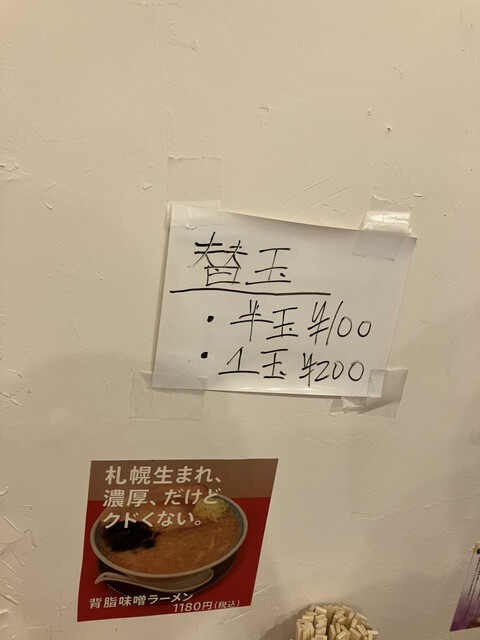 替玉
・半玉 ¥100
・1玉 ¥200
札幌生まれ、
濃厚、だけど
クドくない。
背脂味噌ラーメン
1180円(税込)